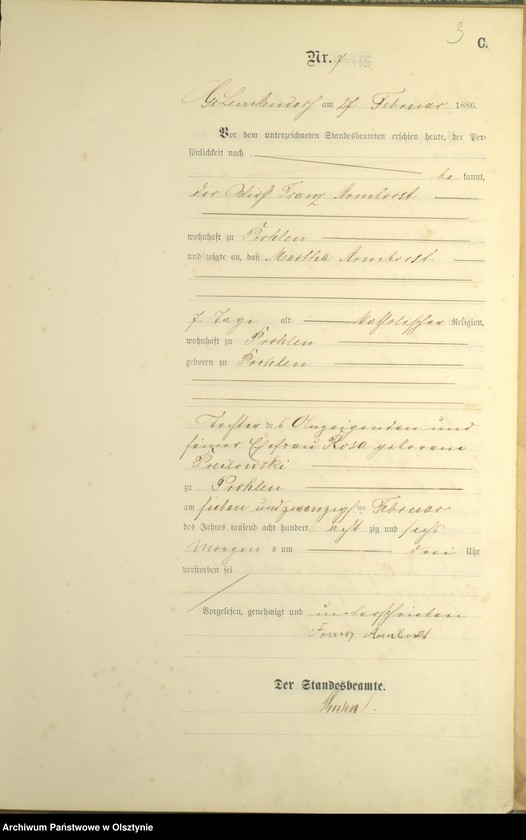 3 C.
Nr. 7
am 27 Februar 1886.
Vor dem unterzeichneten Standesbeamten erschien heute, der Per-
sönlichkeit nach
be kannt,
der Wirth Franz Armborst
wohnhaft zu Prohlen
und zeigte an, daß Martha Armborst
7 Tage alt katholischer Religion,
wohnhaft zu Prohlen
geboren zu Prohlen
Tochter des Anzeigenden und
seiner Ehefrau Rosa geborene
Preilowski
zu Prohlen
am sieben undzwanzigsten Februar
des Jahres tausend acht hundert acht zig und sechs
Morgen s um drei Uhr
verstorben sei
Vorgelesen, genehmigt und unterschrieben
Franz Armborst
Der Standesbeamte.
Archiwum Państwowe w Olsztynie